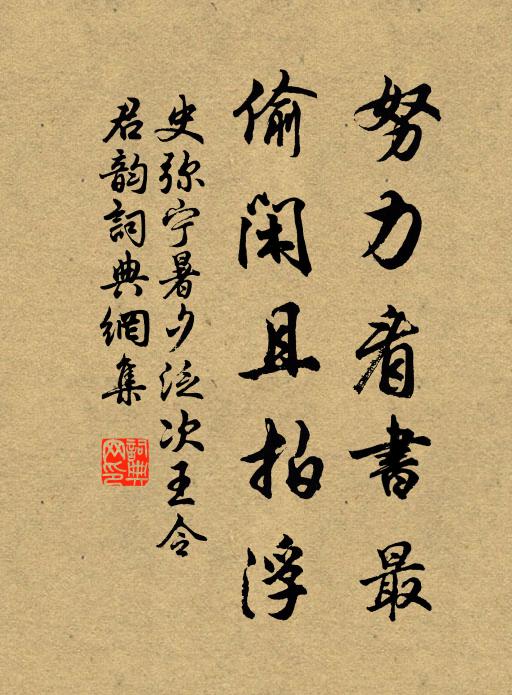 努力看書最
偷閑且拍浮
史弥宁暑夕泛次王令
君韵詞典網集
詞典
网印